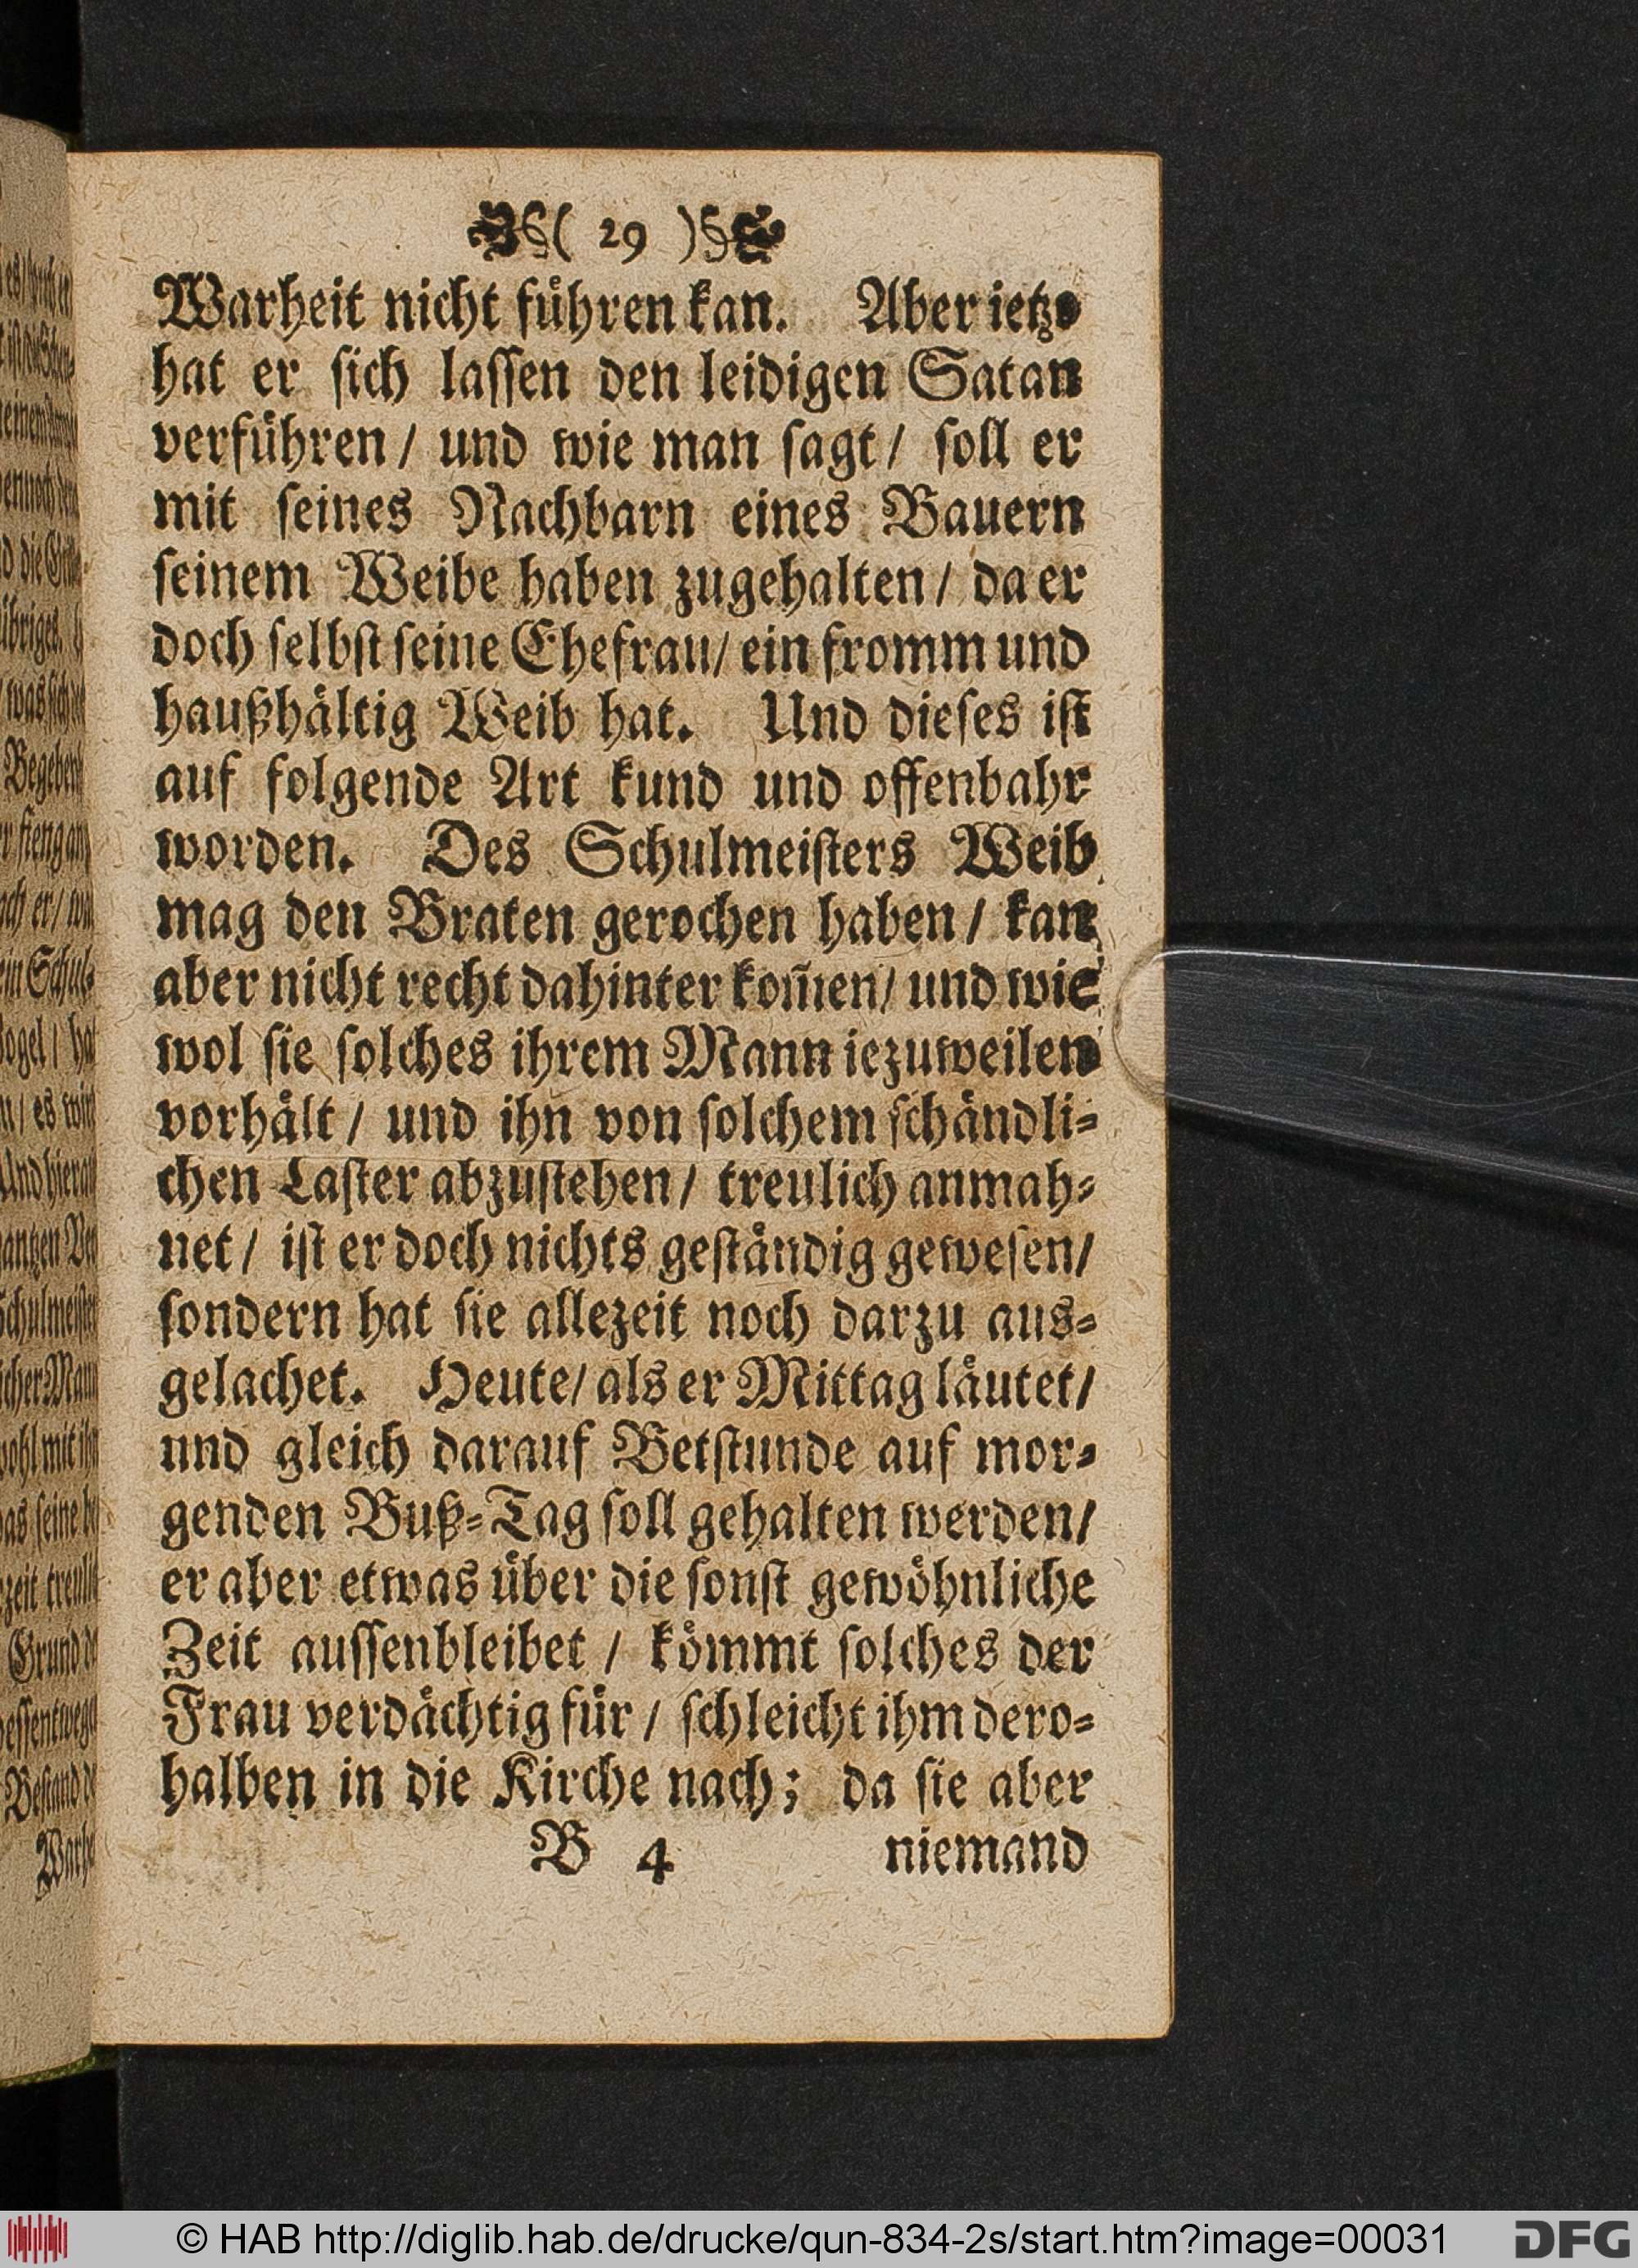 ( 29 )
Warheit nicht fuͤhren kan. Aber ietzo
hat er ſich laſſen den leidigen Satan
verfuͤhren / und wie man ſagt / ſoll er
mit ſeines Nachbarn eines Bauern
ſeinem Weibe haben zugehalten / da er
doch ſelbſt ſeine Ehefrau / ein fromm und
haußhaͤltig Weib hat. Und dieſes iſt
auf folgende Art kund und offenbahr
worden. Des Schulmeiſters Weib
mag den Braten gerochen haben / kan
aber nicht recht dahinter kom̃en / und wie
wol ſie ſolches ihrem Mann iezuweilen
vorhaͤlt / und ihn von ſolchem ſchaͤndli⸗
chen Laſter abzuſtehen / treulich anmah⸗
net / iſt er doch nichts geſtaͤndig geweſen /
ſondern hat ſie allezeit noch darzu aus⸗
gelachet. Heute / als er Mittag laͤutet /
und gleich darauf Betſtunde auf mor⸗
genden Buß⸗Tag ſoll gehalten werden /
er aber etwas uͤber die ſonſt gewoͤhnliche
Zeit auſſenbleibet / koͤmmt ſolches der
Frau verdaͤchtig fuͤr / ſchleicht ihm dero⸗
halben in die Kirche nach; da ſie aber
B 4 niemand
© HAB http://diglib.hab.de/drucke/qun-834-2s/start.htm?image=00031
DFG